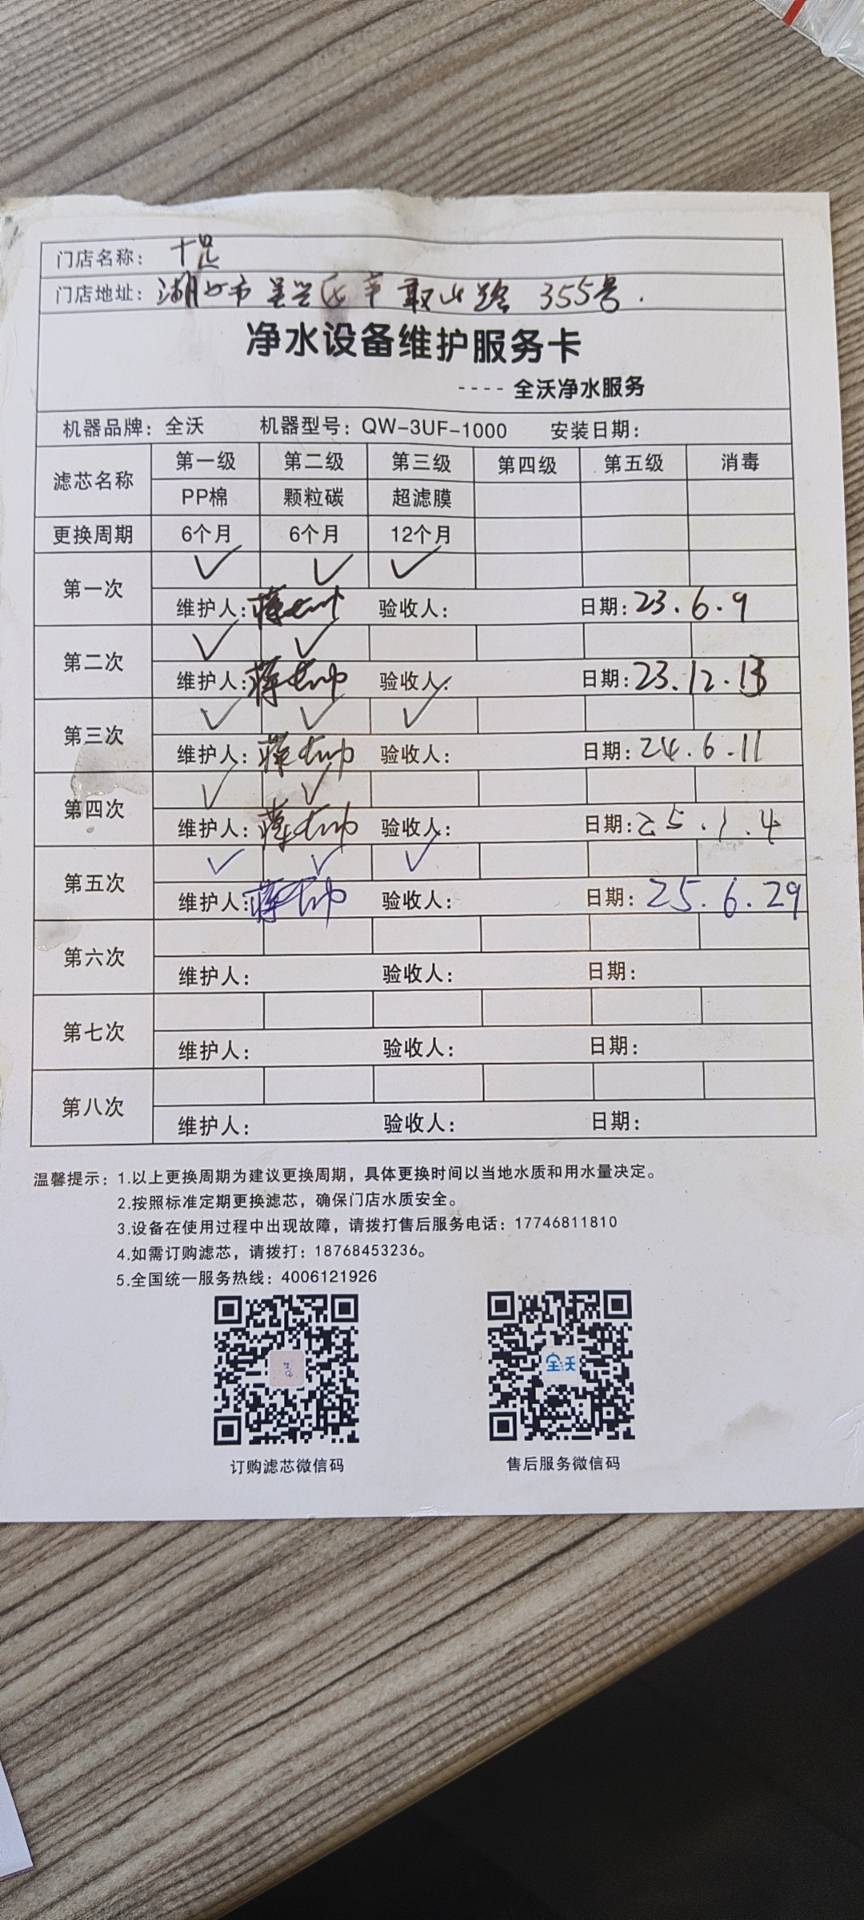 门店名称: 十足
门店地址: 湖州市吴兴区 355号.
净水设备维护服务卡
---- 全沃净水服务
机器品牌: 全沃 机器型号: QW-3UF-1000 安装日期:
滤芯名称 第一级 第二级 第三级 第四级 第五级 消毒
PP棉 颗粒碳 超滤膜
更换周期 6个月 6个月 12个月
第一次 ✓ ✓ ✓
维护人: 验收人: 日期: 23.6.9
第二次 ✓ ✓
维护人: 验收人: 日期: 23.12.
第三次 ✓ ✓ ✓
维护人: 验收人: 日期: 24.6.11
第四次 ✓ ✓
维护人: 验收人: 日期: 25.1.4
第五次 ✓ ✓ ✓
维护人: 验收人: 日期: 25.6.29
第六次
维护人: 验收人: 日期:
第七次
维护人: 验收人: 日期:
第八次
维护人: 验收人: 日期:
温馨提示: 1.以上更换周期为建议更换周期，具体更换时间以当地水质和用水量决定。
2.按照标准定期更换滤芯，确保门店水质安全。
3.设备在使用过程中出现故障，请拨打售后服务电话: 17746811810
4.如需订购滤芯，请拨打: 18768453236。
5.全国统一服务热线: 4006121926
全沃
订购滤芯微信码 售后服务微信码